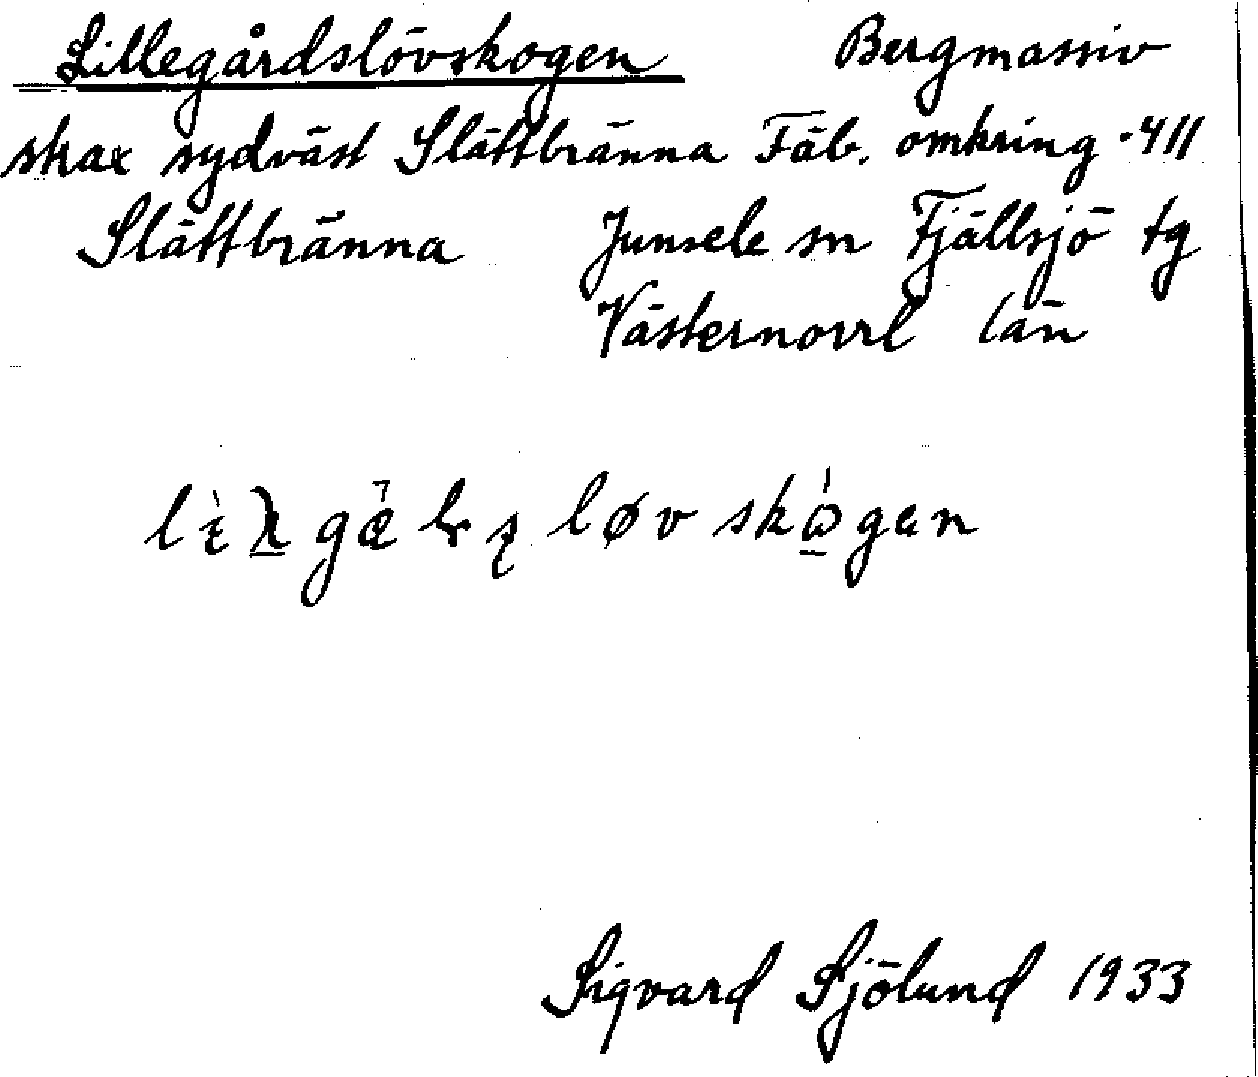 Lillegårdslövskogen Bergmassiv
strax sydväst Slättbränna Fäb. omkring ·411
Slättbränna Junsele sn Fjällsjö tg
Västernorrl län
løvskògen
Sigvard Sjölund 1933